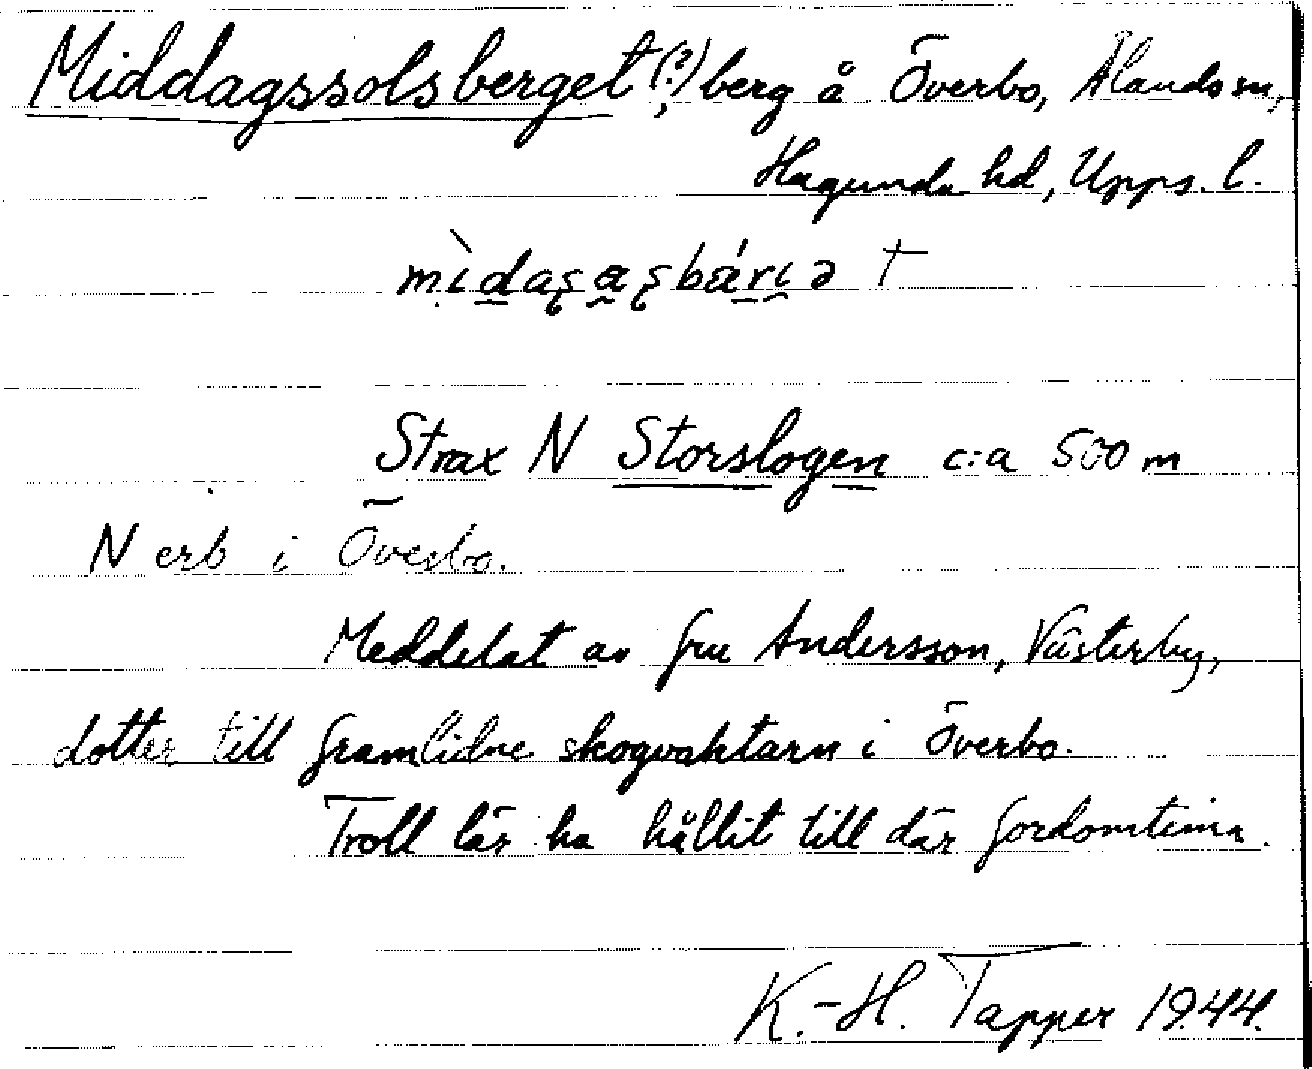 Middagssolsberget(?), berg å Överbo, Ålands sn,
Hagunda hd, Upps. l.
Strax N Storslogen c:a 500 m
N erb i Överbo.
Meddelat av fru Andersson, Västerby,
dotter till framlidne skogvaktarn i Överbo.
Troll lär ha hållit till där fordomtima.
K.-H. Tapper 1944.